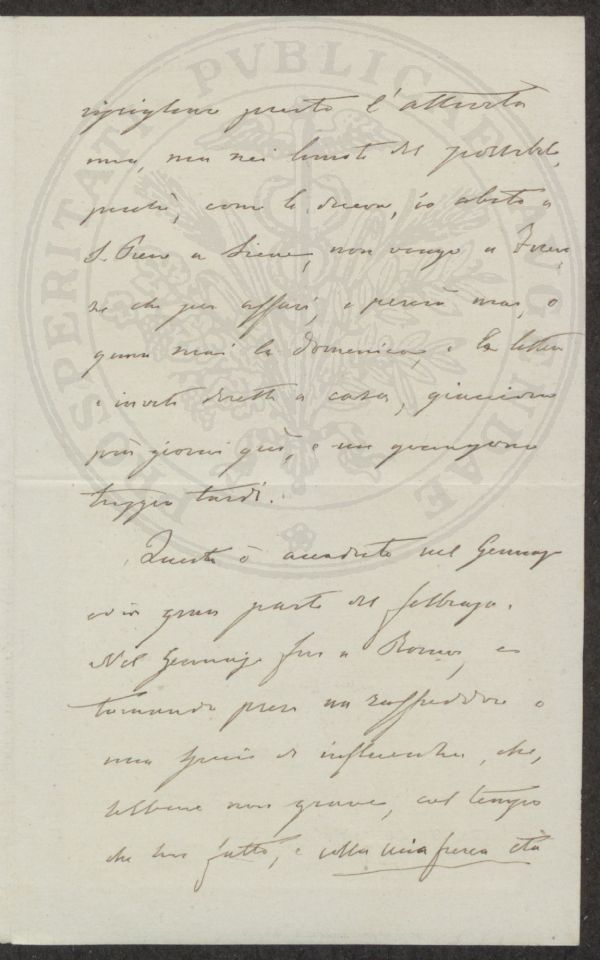 PROSPERITATI PVBLICAE AVGENDAE
ripigliare presto l'attività
mia, ma nei limiti del possibile,
perchè, come le diceva, io abito a
S. Piero a Sieve, non vengo a Firen-
ze che per affari, e perciò mai, o
quasi mai la domenica, e la lettera
e inviti diretti a casa, giacciono
più giorni quì, e mi giungono
troppo tardi.
Questo è accaduto nel Gennajo
ed in gran parte del febbrajo.
Nel Gennajo fui a Roma, e
tornando presi un raffreddore o
una specie di influenza, che,
sebbene non grave, col tempo
che ha fatto, e colla mia fresca età